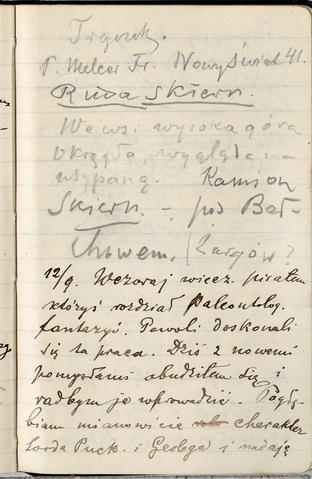 P. Melcer Fr. Nowy Świat 41.
Ruda Skiern.
We wsi wysoka góra
okrągła, wygląda na
usypaną. Kamion
Skiern. – pod Beł-
chowem. (Żargów?
12/9. Wczoraj wiecz. pisałem
któryś rozdział Paleontolog.
fantazyi. Powoli doskonali
się ta praca. Dziś z nowemi
pomysłami obudziłem się i
radbym je wprowadzić. Pogłę-
biam mianowicie charakter
Lorda Puck. i Georga i nadaję